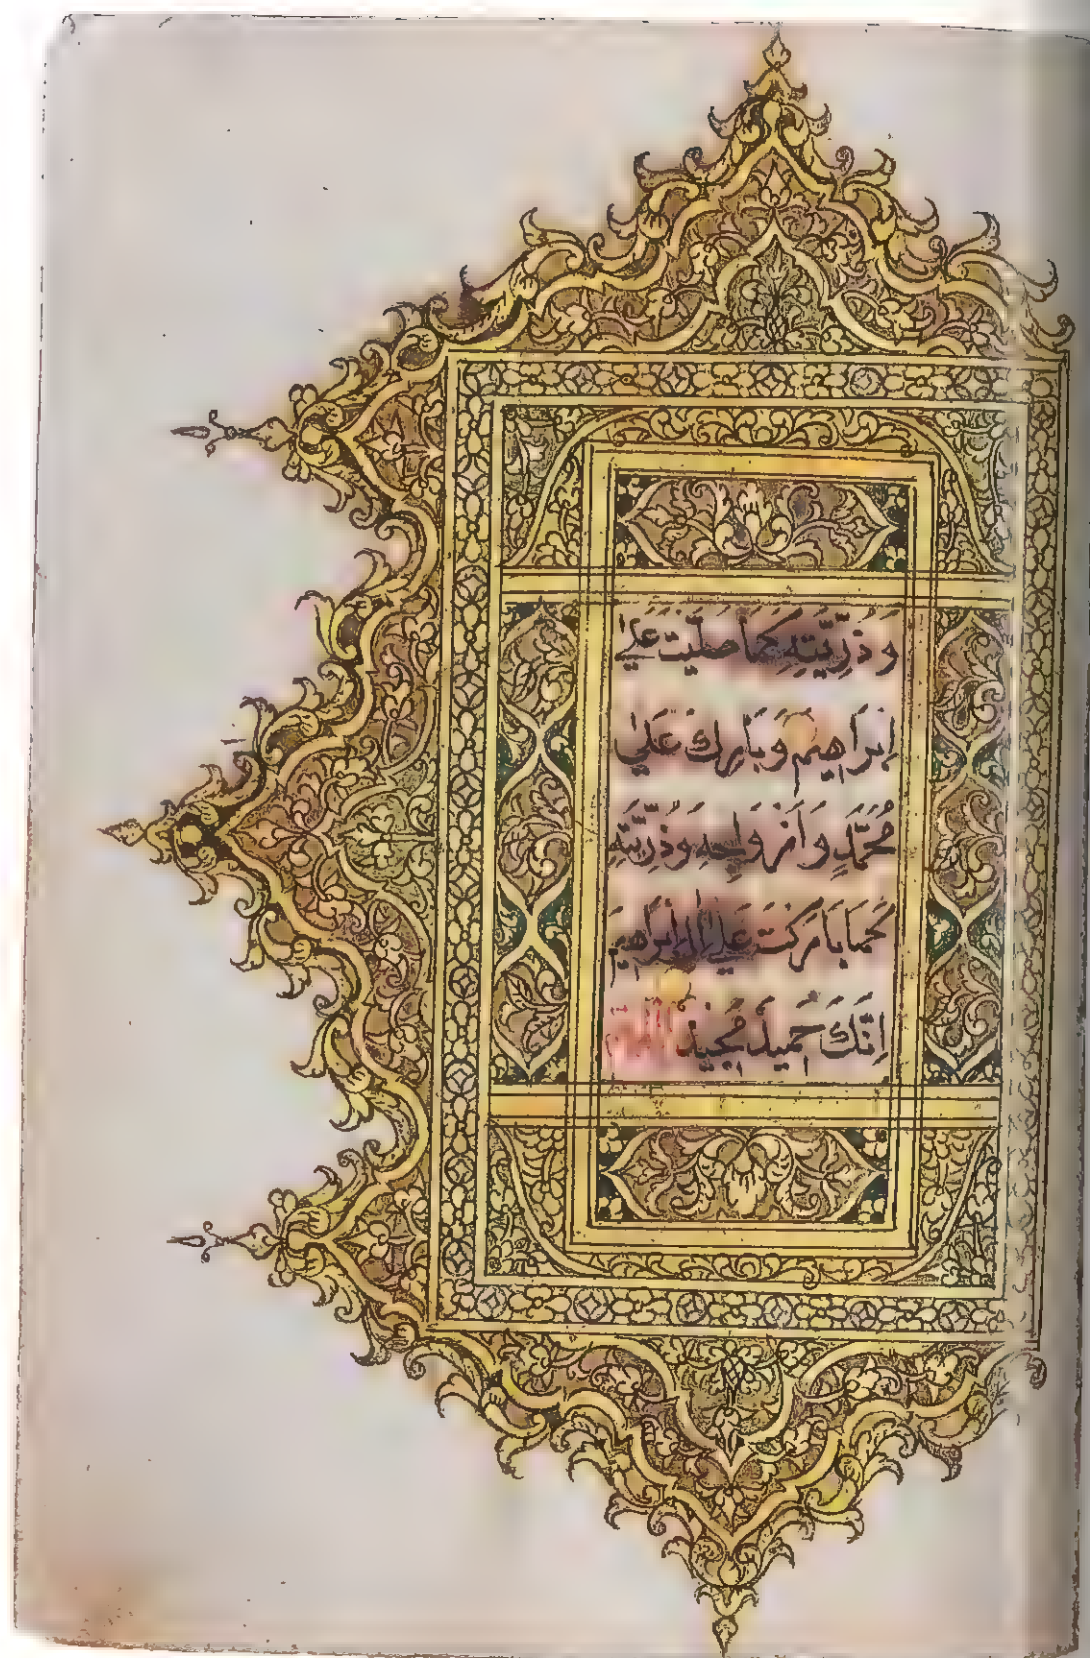 وَذُرِّيَّتِهِ كَمَا صَلَّيْتَ عَلَى
اِبْرَاهِيمَ وَبَارِكْ عَلَى
مُحَمَّدٍ وَاَزْوَاجِهِ وَذُرِّيَّتِهِ
كَمَا بَارَكْتَ عَلَى اٰلِ اِبْرَاهِيمَ
اِنَّكَ حَمِيدٌ مَجِيدٌ اللهم